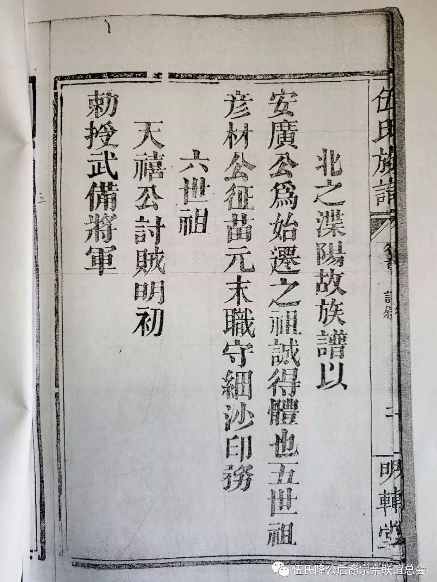 伍氏族譜
二
明輔堂
北之渫陽故族譜以
安廣公爲始遷之祖誠得體也五世祖
彦材公征苗元末職守細沙印務
六世祖
天禧公討賊明初
勅授武備將軍
伍氏隆公后裔宗亲联谊总会